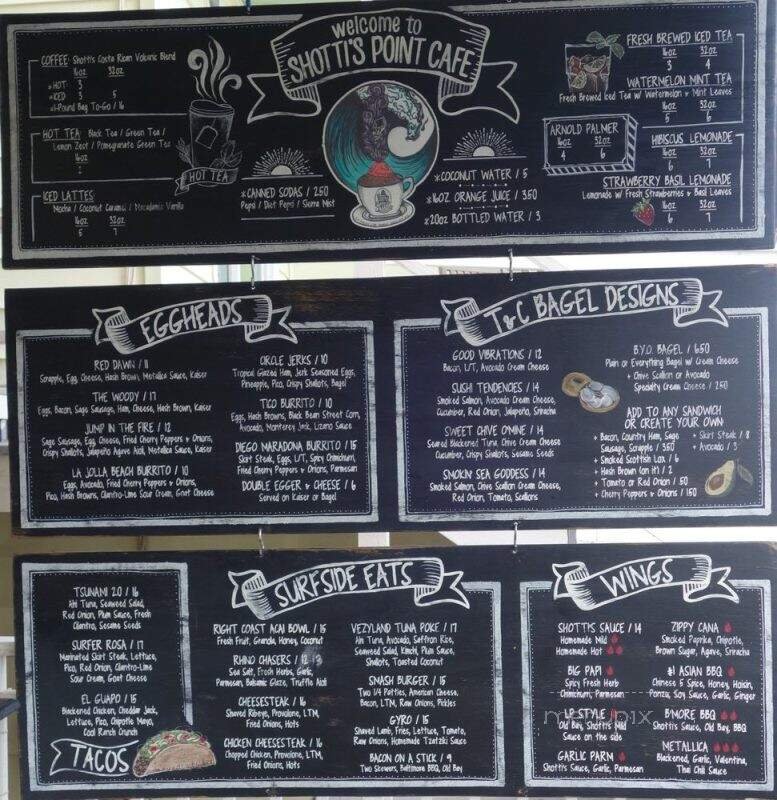 welcome to
SHOTTI'S POINT CAFE
COFFEE: Shotti's Costa Rican Volcanic Blend
16oz 32oz
*HOT 3
*ICED 3 5
*1-Pound Bag To-Go / 16
HOT TEA: Black Tea / Green Tea /
Lemon Zest / Pomegranate Green Tea
16oz
HOT TEA
ICED LATTES:
Mocha / Coconut Caramel / Macadamia Vanilla
16oz 32oz
5 7
*CANNED SODAS / 2.50
Pepsi / Diet Pepsi / Sierra Mist
*COCONUT WATER / 5
*16OZ ORANGE JUICE / 3.50
*20oz BOTTLED WATER / 3
FRESH BREWED ICED TEA
16oz 32oz
3 4
WATERMELON MINT TEA
Fresh Brewed Iced Tea w/ Watermelon & Mint Leaves
16oz 32oz
5 6
ARNOLD PALMER
16oz 32oz
4 6
HIBISCUS LEMONADE
16oz 32oz
6 7
STRAWBERRY BASIL LEMONADE
Lemonade w/ Fresh Strawberries & Basil Leaves
16oz 32oz
6 7
EGGHEADS
RED DAWN / 11
Scrapple, Egg, Cheese, Hash Brown, Metallica Sauce, Kaiser
THE WOODY / 17
Eggs, Bacon, Sage Sausage, Ham, Cheese, Hash Brown, Kaiser
JUMP IN THE FIRE / 12
Sage Sausage, Egg, Cheese, Fried Cherry Peppers & Onions,
Crispy Shallots, Jalapeño Agave Aioli, Metallica Sauce, Kaiser
LA JOLLA BEACH BURRITO / 10
Eggs, Avocado, Fried Cherry Peppers & Onions,
Pico, Hash Browns, Cilantro-Lime Sour Cream, Goat Cheese
CIRCLE JERKS / 10
Tropical Glazed Ham, Jerk Seasoned Eggs,
Pineapple, Pico, Crispy Shallots, Bagel
TICO BURRITO / 10
Eggs, Hash Browns, Black Bean Street Corn,
Avocado, Monterey Jack, Lizano Sauce
DIEGO MARADONA BURRITO / 15
Skirt Steak, Eggs, L/T, Spicy Chimichurri,
Fried Cherry Peppers & Onions, Parmesan
DOUBLE EGGER & CHEESE / 6
Served on Kaiser or Bagel
T&C BAGEL DESIGNS
GOOD VIBRATIONS / 12
Bacon, L/T, Avocado Cream Cheese
SUSHI TENDENCIES / 14
Smoked Salmon, Avocado Cream Cheese,
Cucumber, Red Onion, Jalapeño, Sriracha
SWEET CHIVE O'MINE / 14
Seared Blackened Tuna, Chive Cream Cheese
Cucumber, Crispy Shallots, Sesame Seeds
SMOKIN' SEA GODDESS / 14
Smoked Salmon, Chive Scallion Cream Cheese,
Red Onion, Tomato, Scallions
B.Y.O. BAGEL / 6.50
Plain or Everything Bagel w/ Cream Cheese
+ Chive Scallion or Avocado
Specialty Cream Cheese / 2.50
ADD TO ANY SANDWICH
OR CREATE YOUR OWN
+ Bacon, Country Ham, Sage
Sausage, Scrapple / 3.50
+ Smoked Scottish Lox / 6
+ Hash Brown (on it) / 2
+ Tomato or Red Onion / .50
+ Cherry Peppers & Onions / 1.50
+ Skirt Steak / 8
+ Avocado / 3
TSUNAMI 2.0 / 16
Ahi Tuna, Seaweed Salad,
Red Onion, Plum Sauce, Fresh
Cilantro, Sesame Seeds
SURFER ROSA / 17
Marinated Skirt Steak, Lettuce,
Pico, Red Onion, Cilantro-Lime
Sour Cream, Goat Cheese
EL GUAPO / 15
Blackened Chicken, Cheddar Jack,
Lettuce, Pico, Chipotle Mayo,
Cool Ranch Crunch
TACOS
SURFSIDE EATS
RIGHT COAST ACAI BOWL / 15
Fresh Fruit, Granola, Honey, Coconut
RHINO CHASERS / 12
Sea Salt, Fresh Herbs, Garlic,
Parmesan, Balsamic Glaze, Truffle Aioli
CHEESESTEAK / 16
Shaved Ribeye, Provolone, LTM,
Fried Onions, Hots
CHICKEN CHEESESTEAK / 16
Chopped Chicken, Provolone, LTM,
Fried Onions, Hots
VEZYLAND TUNA POKE / 17
Ahi Tuna, Avocado, Saffron Rice,
Seaweed Salad, Kimchi, Plum Sauce,
Shallots, Toasted Coconut
SMASH BURGER / 15
Two 1/4 Patties, American Cheese,
Bacon, LTM, Raw Onions, Pickles
GYRO / 15
Shaved Lamb, Fries, Lettuce, Tomato,
Raw Onions, Homemade Tzatziki Sauce
BACON ON A STICK / 9
Two Skewers, Baltimore BBQ, Old Bay
WINGS
SHOTTI'S SAUCE / 14
Homemade Mild
Homemade Hot
BIG PAPI
Spicy Fresh Herb
Chimichurri, Parmesan
LP STYLE
Old Bay, Shotti's Mild
Sauce on the side
GARLIC PARM
Shotti's Sauce, Garlic, Parmesan
ZIPPY CANA
Smoked Paprika, Chipotle,
Brown Sugar, Agave, Sriracha
#1 ASIAN BBQ
Chinese 5 Spice, Honey, Hoisin,
Ponzu, Soy Sauce, Garlic, Ginger
B'MORE BBQ
Shotti's Sauce, Old Bay, BBQ
METALLICA
Blackened, Garlic, Valentina,
Thai Chili Sauce
menupix